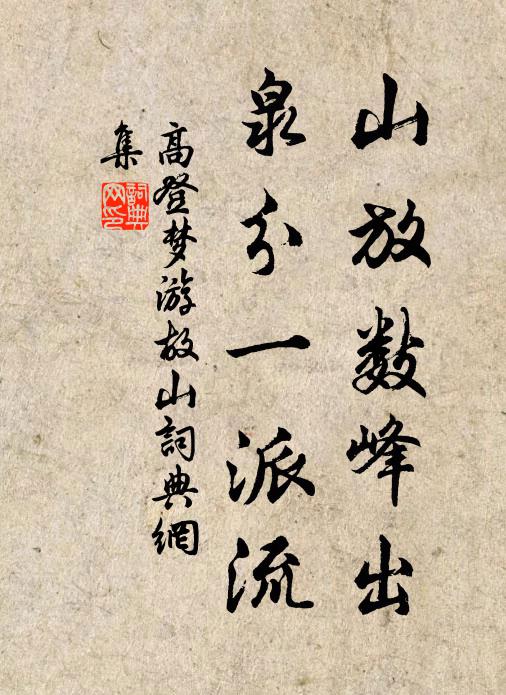 山放数峰出
泉分一派流
高登梦游故山詞典網
集
詞典
网印